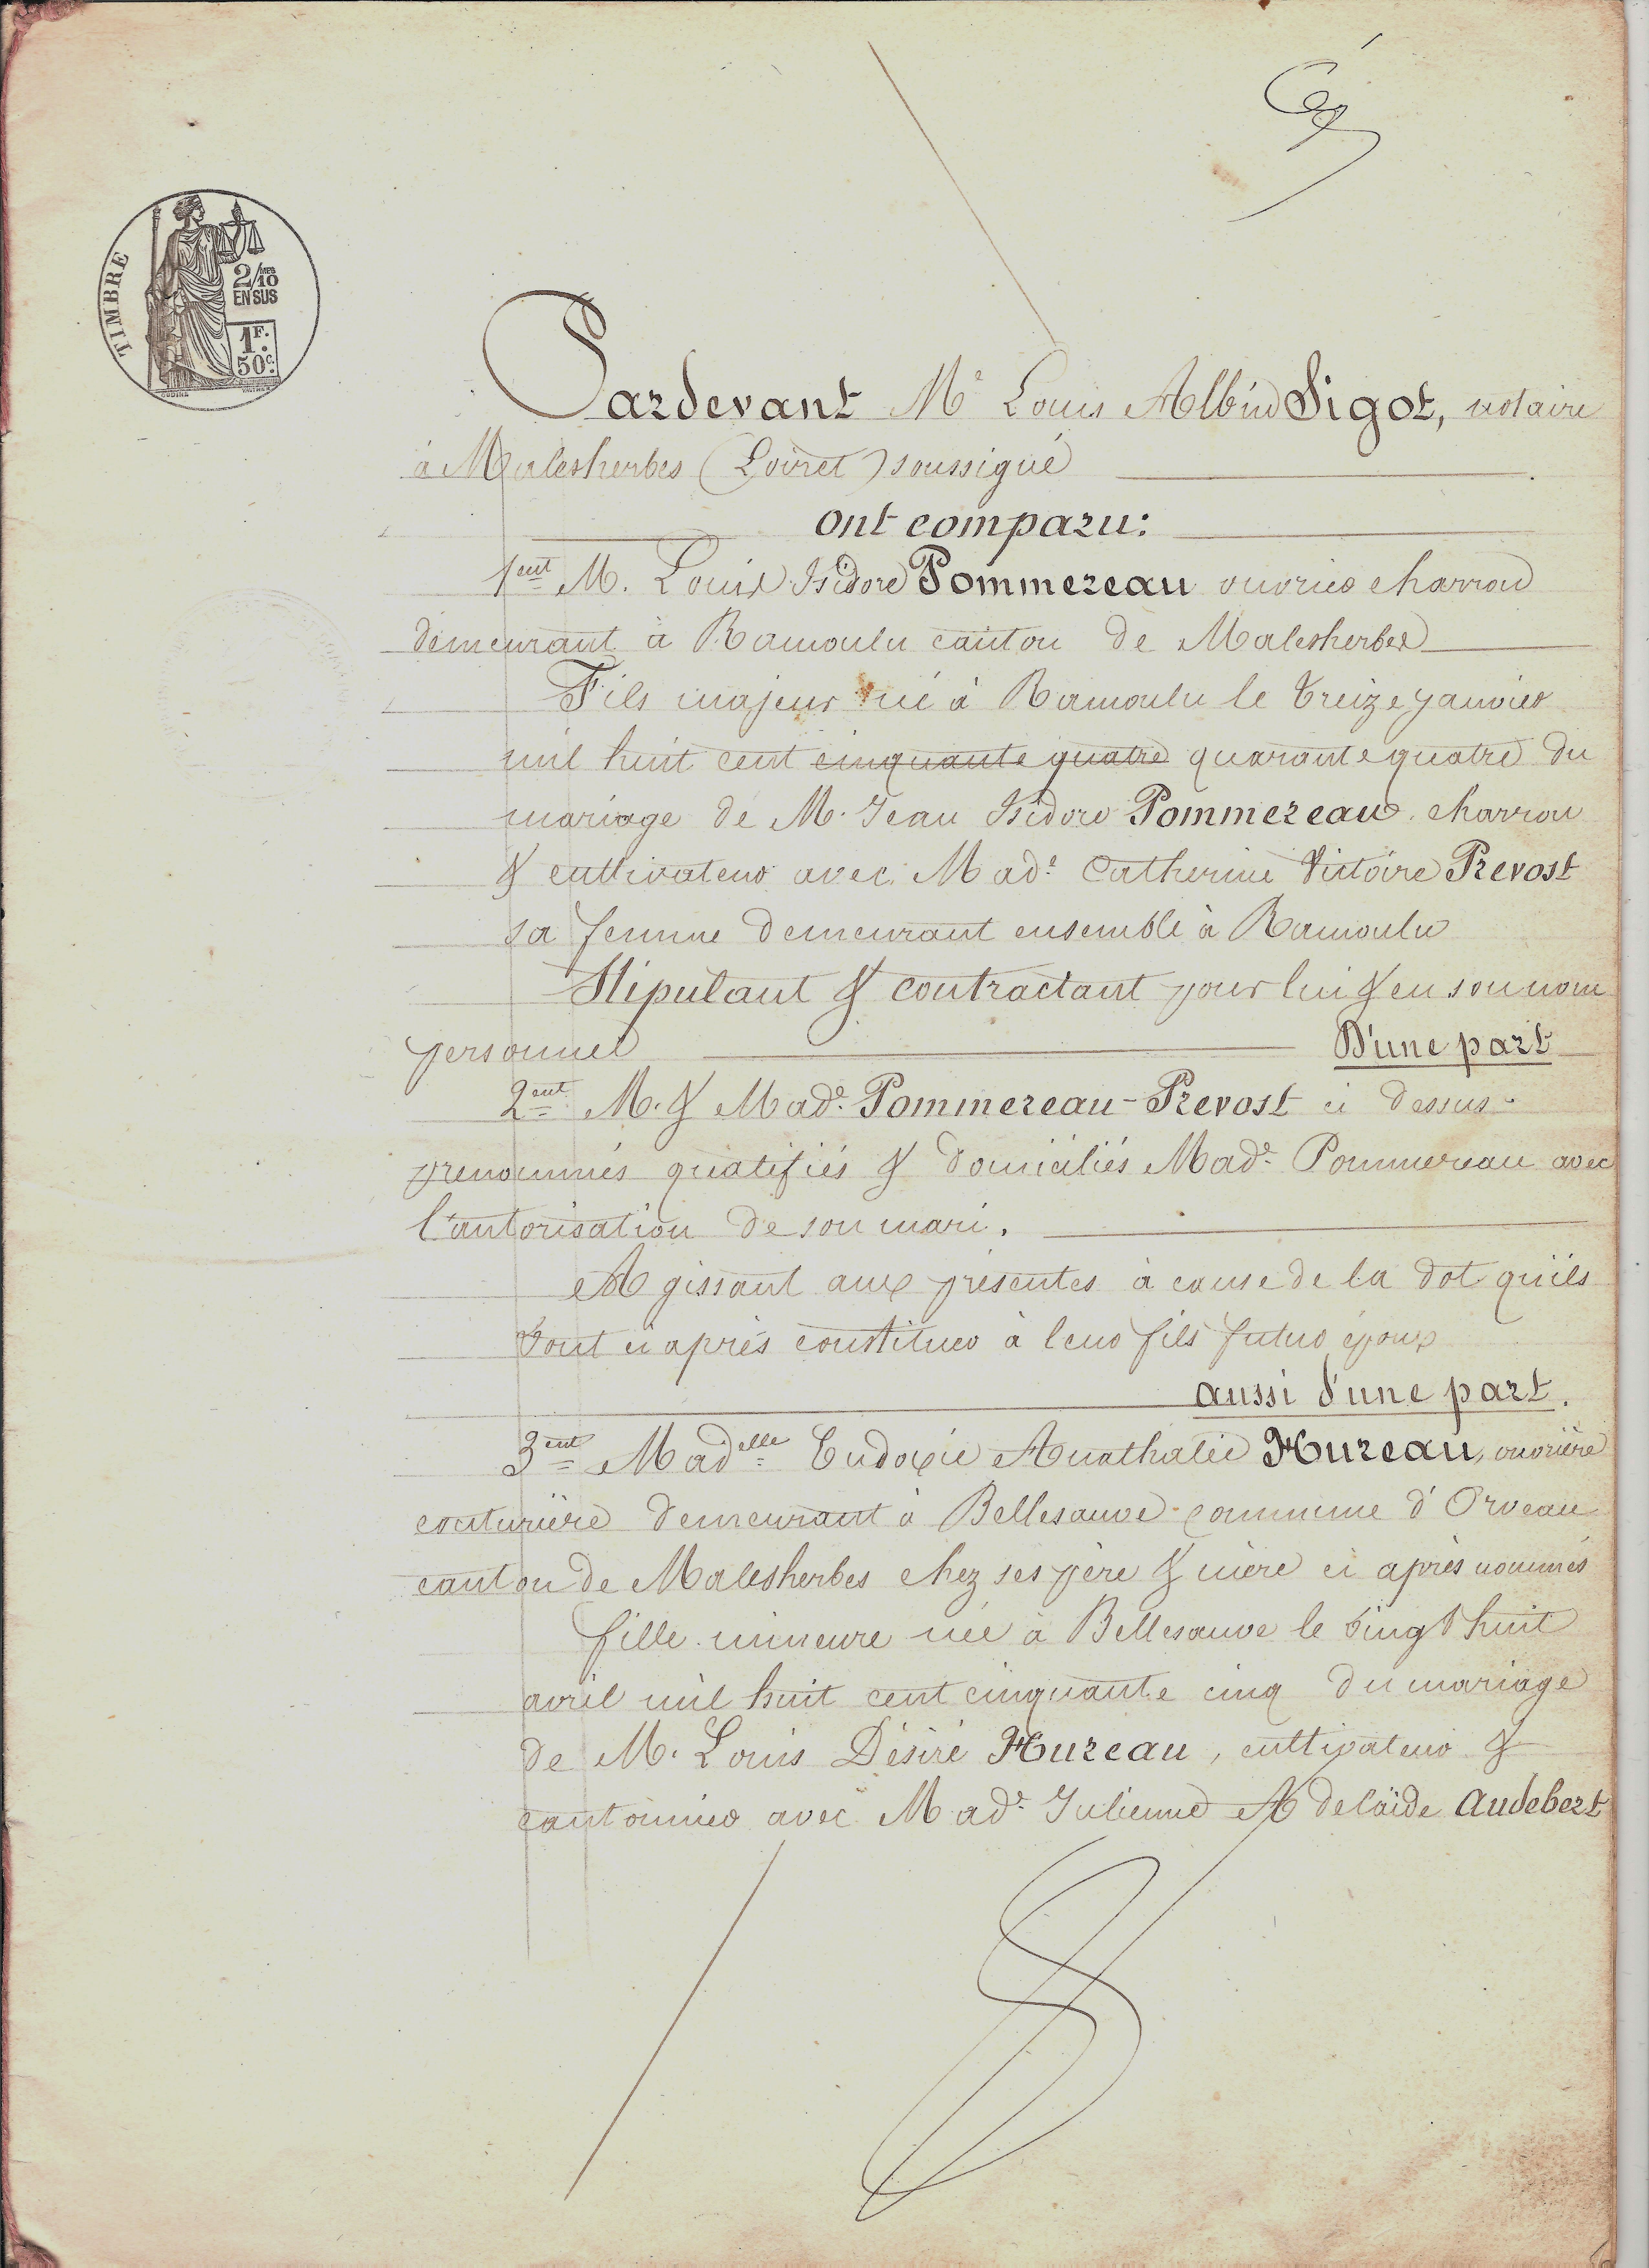 TIMBRE
2/10 MES
EN SUS
1F.
50c.
Pardevant Me Louis Albin Sigot, notaire
à Malesherbes (Loiret) soussigné
ont comparu:
1ent M. Louis Isidore Pommereau ouvrier charron
demeurant à Ramoulu canton de Malesherbes
Fils majeur né à Ramoulu le treize janvier
mil huit cent cinquante quatre quarante quatre du
mariage de M. Jean Isidore Pommereau charron
& cultivateur avec Made Catherine Victoire Prevost
sa femme demeurant ensemble à Ramoulu
Stipulant & contractant pour lui & en son nom
personnel D'une part
2ent M. & Made Pommereau-Prevost ci dessus
prenommés qualifiés & domiciliés Made Pommereau avec
l'autorisation de son mari.
Agissant aux présentes à cause de la dot qu'ils
vont ci après constituer à leur fils futur époux
aussi d'une part.
3ent Madelle Eudoxie Anathalie Hureau, ouvrière
couturière demeurant à Bellesauve commune d'Orveau
canton de Malesherbes chez ses père & mère ci après nommés
fille mineure née à Bellesauve le vingt huit
avril mil huit cent cinquante cinq du mariage
de M. Louis Désiré Hureau, cultivateur &
cantonnier avec Made Julienne Adelaïde Audebert